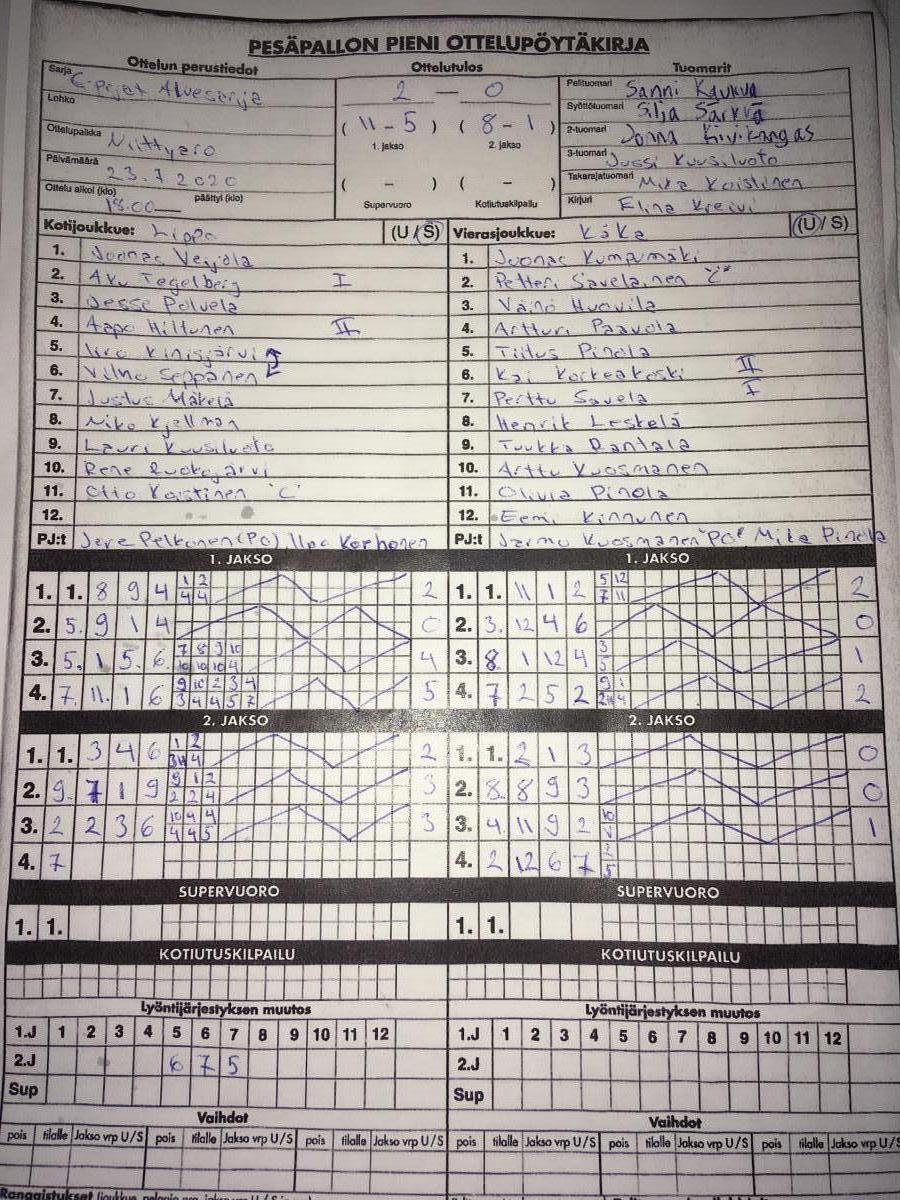 PESÄPALLON PIENI OTTELUPÖYTÄKIRJA
Ottelun perustiedot
Sarja E-Pojat Aluesarja
Lohko
Ottelupaikka Niittyaro
Päivämäärä 23.7 2020
Ottelu alkoi (klo) 18.00 päättyi (klo)
Ottelutulos
2 — 0
( 11 - 5 ) ( 8 - 1 )
1. jakso 2. jakso
( - ) ( - )
Supervuoro Kotiutuskilpailu
Tuomarit
Pelituomari Sanni Kaukua
Syöttötuomari Silja Särkvä
2-tuomari Jonna Kivikangas
3-tuomari Jussi Kuusiluoto
Takarajatuomari Mika Koistinen
Kirjuri Elina Kreivi
Kotijoukkue: Lippo (U / S)
1. Joonas Veijola
2. Aku Tegelberg I
3. Jesse Polvela
4. Aapo Hiltunen II
5. Iiro Kinisjärvi
6. Vilho Seppänen
7. Justus Mäkelä
8. Niko Kjellman
9. Lauri Kuusiluoto
10. Rene Ruokojärvi
11. Otto Koistinen "C"
12.
PJ:t Jere Pelkonen (PO), Ilpo Korhonen
Vierasjoukkue: KäKa (U / S)
1. Joonas Kumpumäki
2. Petteri Savelainen "C"
3. Väinö Huovila
4. Artturi Paavola
5. Tiitus Pinola
6. Kai Korkeakoski II
7. Perttu Savela I
8. Henrik Leskelä
9. Tuukka Rantala
10. Arttu Kuosmanen
11. Olivia Pinola
12. Eemi Kinnunen
PJ:t Jarmo Kuosmanen "PO" Mika Pinola
1. JAKSO
1. 1. 8 9 4 1 2 4 4 2
2. 5. 9 1 4 0
3. 5. 1 5. 6. 7 8 9 10 10 10 10 4 4
4. 7. 11. 1 6 9 10 2 3 4 3 4 4 5 7 5
1. JAKSO
1. 1. 11 1 2 5 12 7 11 2
2. 3. 12 4 6 0
3. 8. 1 12 4 3 5 1
4. 7 2 5 2 2
2. JAKSO
1. 1. 3 4 6 1 2 2
2. 9. 7 1 9 9 1 2 2 2 4 3
3. 2 2 3 6 10 4 4 4 5 3
4. 7
2. JAKSO
1. 1. 2 1 3 0
2. 8. 8 9 3 0
3. 4. 11 9 2 10 1
4. 2 12 6 7
SUPERVUORO
1. 1.
SUPERVUORO
1. 1.
KOTIUTUSKILPAILU
KOTIUTUSKILPAILU
Lyöntijärjestyksen muutos
1.J 1 2 3 4 5 6 7 8 9 10 11 12
2.J 6 7 5
Sup
Lyöntijärjestyksen muutos
1.J 1 2 3 4 5 6 7 8 9 10 11 12
2.J
Sup
Vaihdot
pois tilalle Jakso vrp U/S pois tilalle Jakso vrp U/S pois tilalle Jakso vrp U/S
Vaihdot
pois tilalle Jakso vrp U/S pois tilalle Jakso vrp U/S pois tilalle Jakso vrp U/S